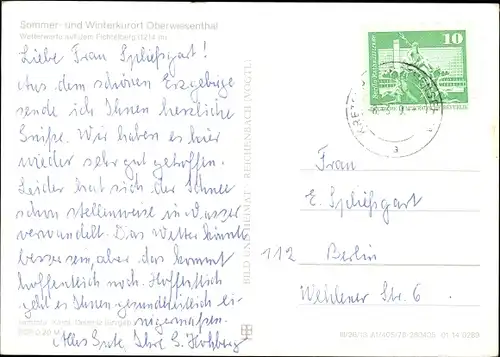 Sommer- und Winterkurort Oberwiesenthal
Wetterwarte auf dem Fichtelberg (1214 m)
Liebe Frau Spließgart!
Aus dem schönen Erzgebirge
sende ich Ihnen herzliche
Grüße. Wir haben es hier
wieder sehr gut getroffen.
Leider hat sich der Schnee
schon stellenweise in Wasser
verwandelt. Das Wetter könnte
besser sein, aber das kommt
hoffentlich noch. Hoffentlich
geht es Ihnen gesundheitlich ei-
nigermaßen.
Alles Gute, Ihre G.
BILD UND HEIMAT REICHENBACH (VOGTL)
10
Frau
E. Spließgart
112 Berlin
Wehlener Str. 6